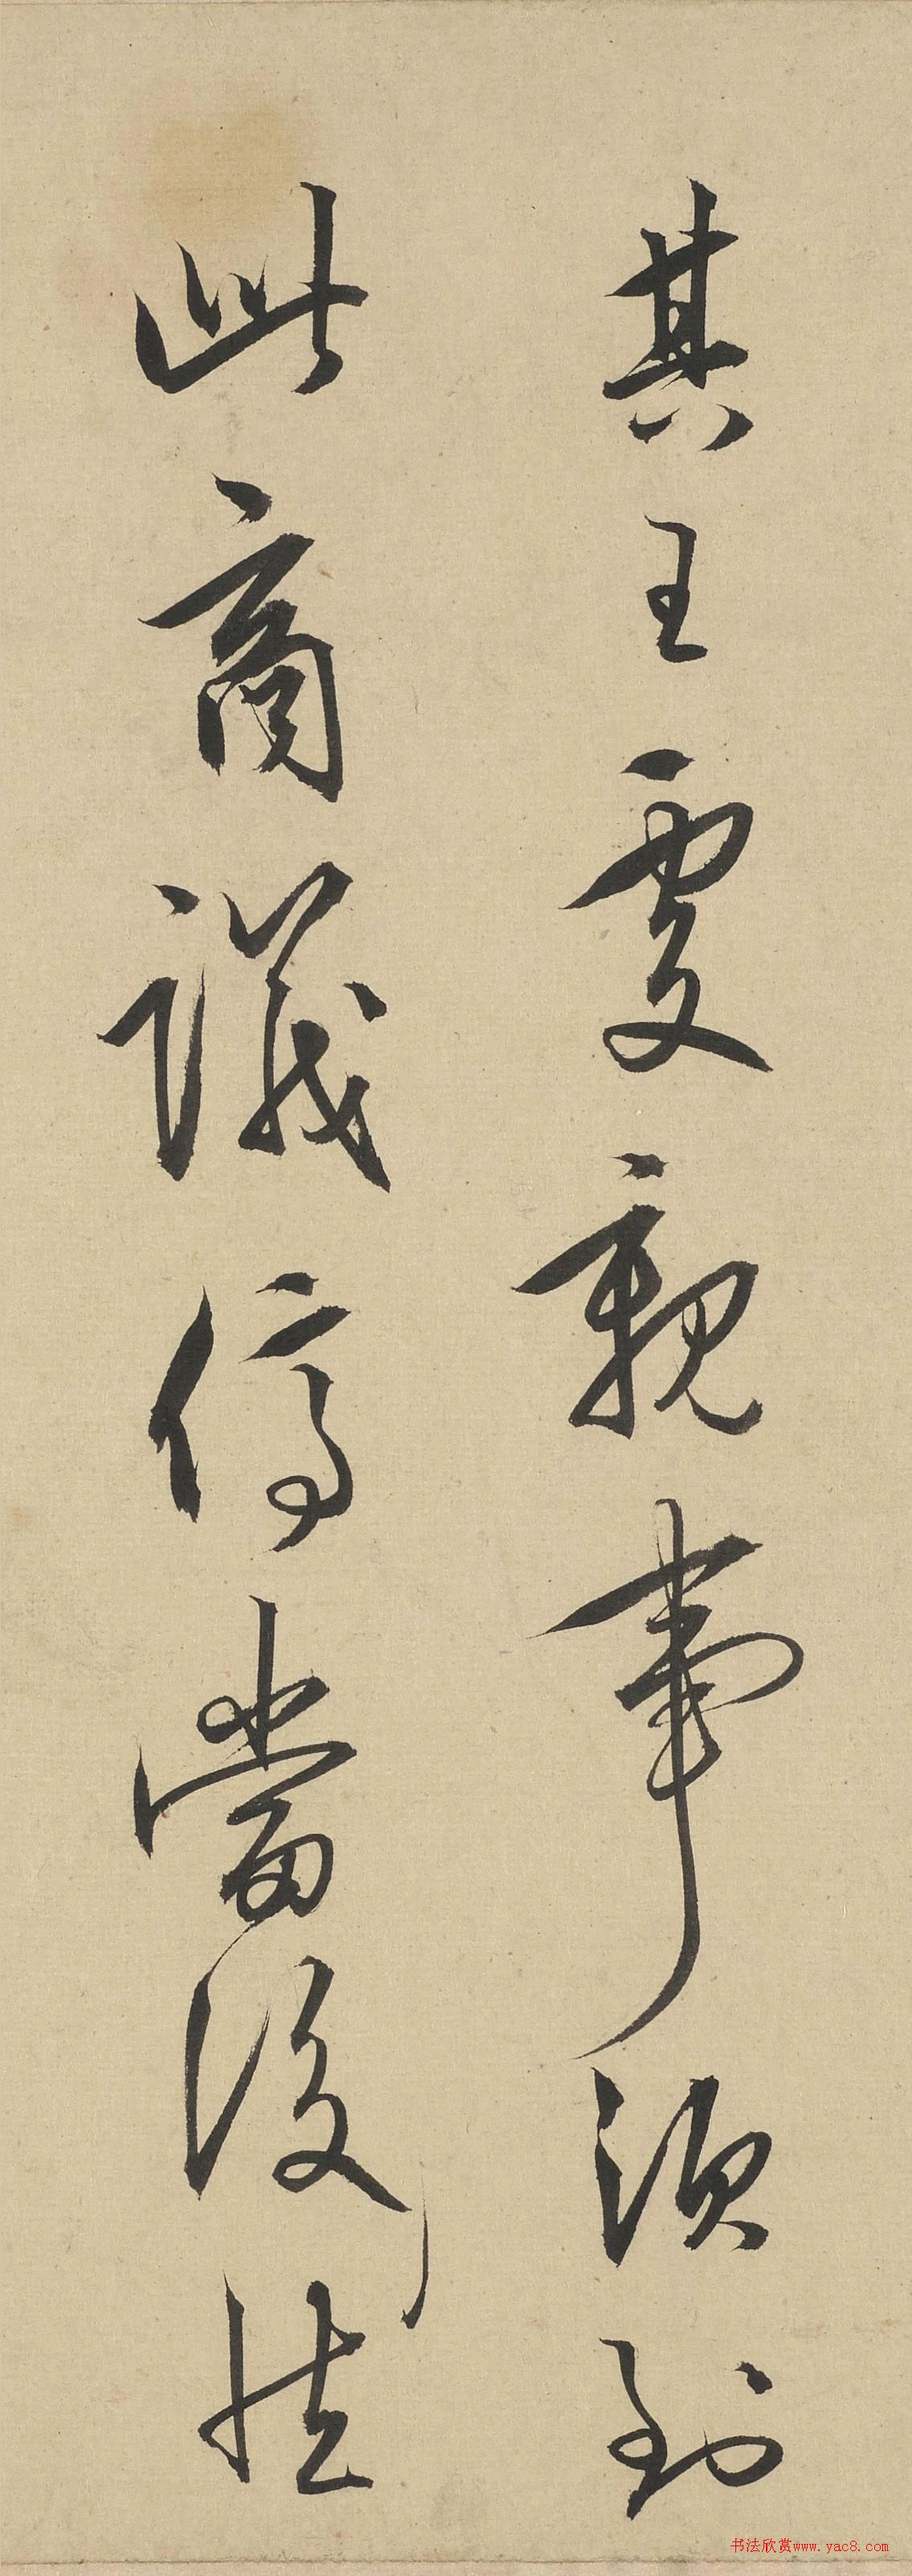 其王处親事須到
此商議停當後法
书法欣赏www.yac8.com